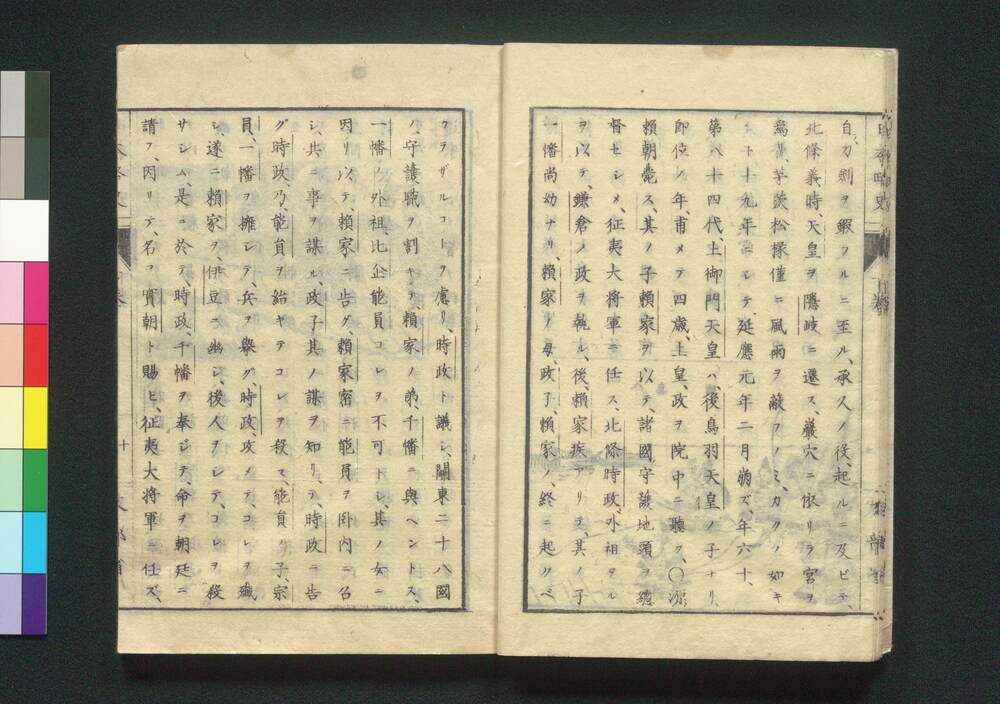 自、刀劍ヲ鍜フルニ至ル、承久ノ役、起ルニ及ビテ、
北條義時、天皇ヲ隱岐ニ遷ス、巖穴ニ依リテ宮ヲ
爲リ、茅茨松椽僅ニ風雨ヲ蔽フノミ、カクノ如キ
コト十九年ニシテ、延應元年二月病ズ、年六十、
第八十四代土御門天皇ハ、後鳥羽天皇ノ子ナリ、
即位ノ年、甫メテ四歳、上皇、政ヲ院中ニ聽ク、〇源
賴朝薨ス、其ノ子賴家ヲ以テ、諸國守護地頭ヲ總
督セシメ、征夷大將軍ニ任ス、北條時政、外祖タル
ヲ以テ、鎌倉ノ政ヲ執ル、後、賴家疾アリテ、其ノ子
一幡尚幼ナリ、賴家ノ母、政子、賴家ノ、終ニ起クベ
カラザルコトヲ慮リ、時政ト議シ、關東二十八國
ノ、守護職ヲ割キテ、賴家ノ弟、千幡ニ與ヘントス、
一幡ノ外祖、比企能員コレヲ不可トシ、其ノ女ニ
因リ、以テ、賴家ニ告グ、賴家密ニ能員ヲ臥内ニ召
シ、共ニ事ヲ謀ル、政子其ノ謀ヲ知リテ、時政ニ告
グ、時政、乃、能員ヲ紿キテコレヲ殺ス、能員ノ子、宗
員、一幡ヲ擁シテ、兵ヲ舉グ、時政、攻メテ、コレヲ殲
シ、遂ニ賴家ヲ、伊豆ニ幽シ、後人ヲシテ、コレヲ殺
サシム、是ニ於テ、時政、千幡ヲ奉ジテ、命ヲ朝廷ニ
請フ、因リテ、名ヲ實朝ト賜ヒ、征夷大將軍ニ任ズ、